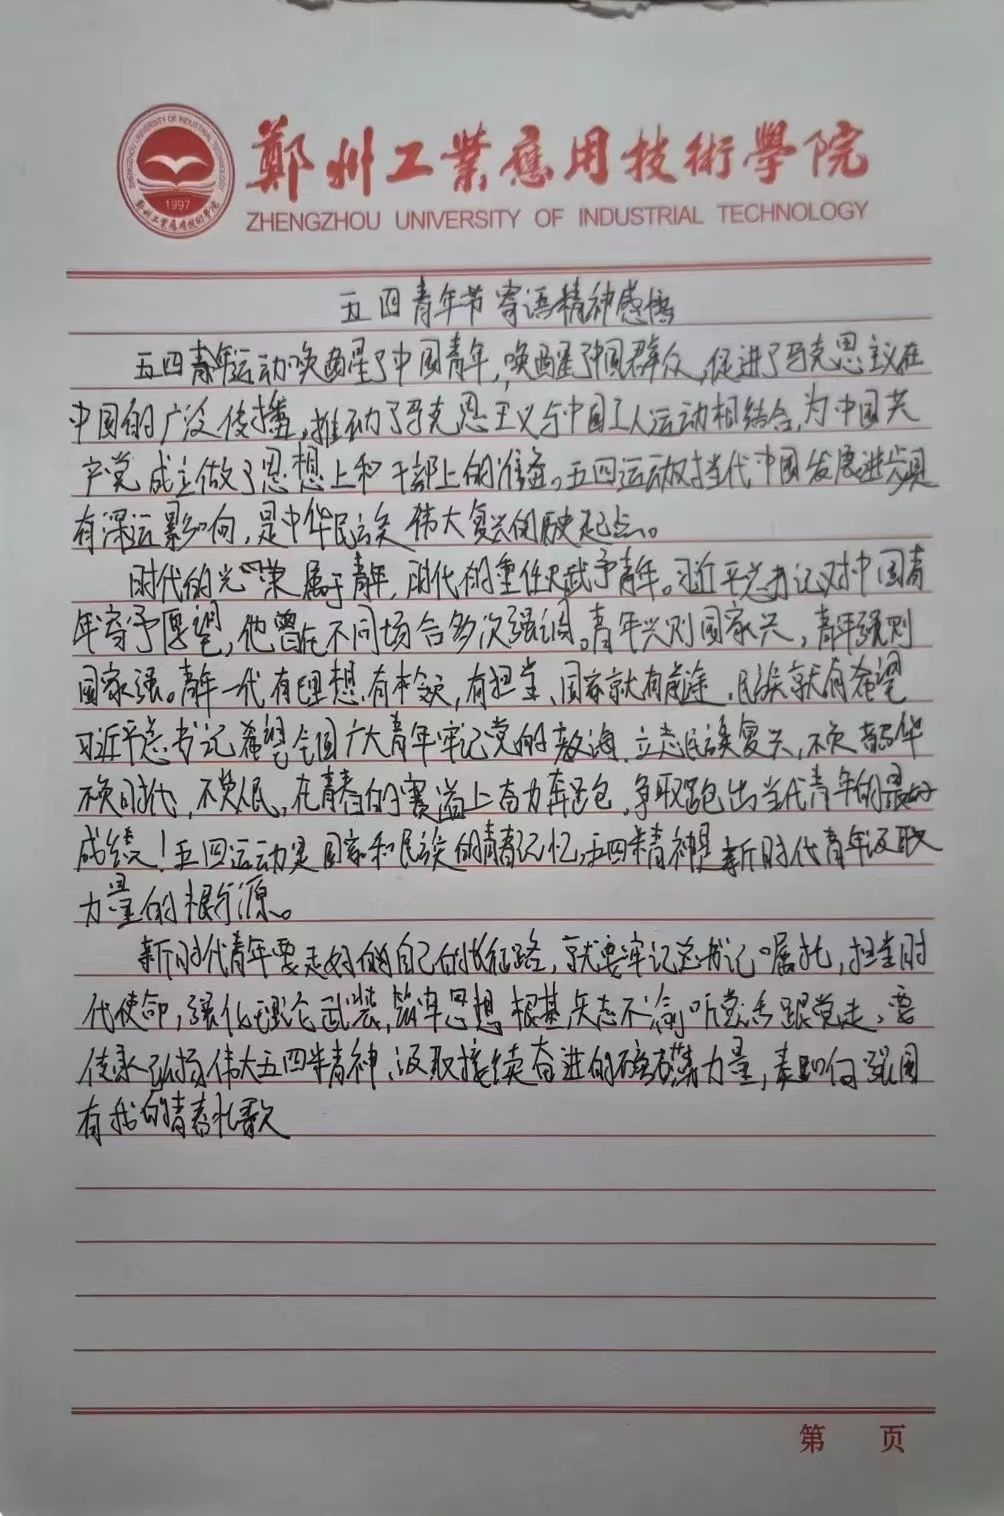 鄭州工業應用技術學院
ZHENGZHOU UNIVERSITY OF INDUSTRIAL TECHNOLOGY
ZHENGZHOU UNIVERSITY OF INDUSTRIAL TECHNOLOGY
1997
鄭州工業應用技術學院
五四青年节寄语精神感悟
五四青年运动唤醒了中国青年,唤醒了中国群众,促进了马克思主议在
中国的广泛传播,推动了马克思主义与中国工人运动相结合,为中国共
产党成立做了思想上和干部上的准备。五四运动对当代中国发展进步具
有深远影响,是中华民族伟大复兴的历史起点。
时代的光荣属于青年,时代的重任赋予青年。习近平总书记对中国青
年寄予厚望,他曾在不同场合多次强调。青年兴则国家兴,青年强则
国家强。青年一代有理想,有本领,有担当、国家就有前途,民族就有希望
习近平总书记希望全国广大青年牢记党的教诲,立志民族复兴,不负韶华
不负时代,不负人民,在青春的赛道上奋力奔跑,争取跑出当代青年的最好
成绩!五四运动是国家和民族的青春记忆,五四精神是新时代青年汲取
力量的根源。
新时代青年要走好的自己的长征路,就要牢记总书记嘱托,担当时
代使命,强化理论武装,筑牢思想根基,矢志不渝听党话跟党走,要
传承弘扬伟大五四精神、汲取接续奋进的磅礴力量,奏响何强国
有我的青春礼歌
第 页